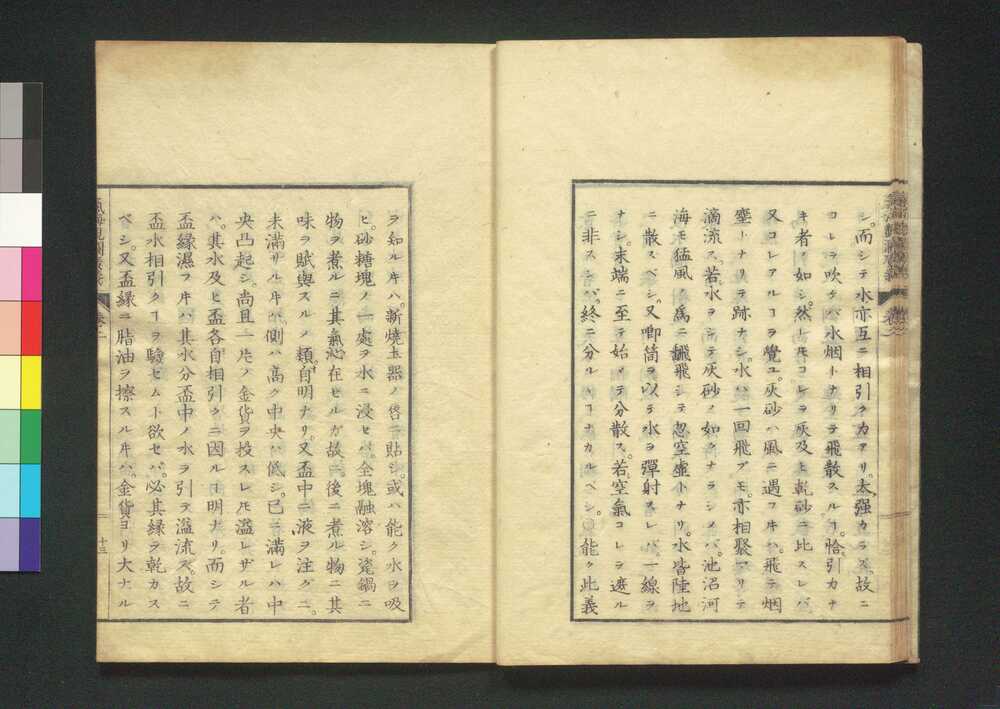 シ。而シテ水亦互ニ相引ク力アリ。太強カラズ。故ニ
コレヲ吹ケバ水烟トナリテ飛散スルヿ。恰引力ナ
キ者ノ如シ。然レ𪜈コレヲ灰及ヒ乾砂ニ比スレバ。
又コレアルヿヲ覺ユ。灰砂ハ風ニ遇フキハ。飛テ烟
塵トナリテ跡ナシ。水ハ一回飛ブモ。亦相聚マリテ
滴流ス。若水ヲシテ灰砂ノ如クナラシメバ。池沼河
海モ猛風ノ爲ニ飜飛シテ忽空虚トナリ。水皆陸地
ニ散スベシ。又喞筒ヲ以テ水ヲ彈射スレバ。一線ヲ
ナシ。末端ニ至テ始メテ分散ス。若空氣コレヲ遮ル
ニ非スンバ。終ニ分ルヽヿナカルベシ。〇能ク此義
ヲ知ルキハ。新燒土器ノ唇ニ貼シ。或ハ能ク水ヲ吸
ヒ。砂糖塊ノ一處ヲ水ニ浸セバ。全塊融溶シ。瓷鍋ニ
物ヲ煮ルニ其氣沁在セルガ故ニ。後ニ煮ル物ニ其
味ヲ賦與スルノ類。自明ナリ。又盃中ニ液ヲ注グニ。
未滿サルキハ。側ハ高ク中央ハ低シ。已ニ滿レハ中
央凸起シ。尚且一片ノ金貨ヲ投スレ𪜈溢レザル者
ハ。其水及ヒ盃各自相引クニ因ルヿ明ナリ。而シテ
盃縁濕ヲキハ其水分盃中ノ水ヲ引テ溢流ス。故ニ
盃水相引クヿヲ驗セムト欲セバ。必其縁ヲ乾カス
ベシ。又盃縁ニ脂油ヲ擦スルキハ。金貨ヨリ大ナル
十三